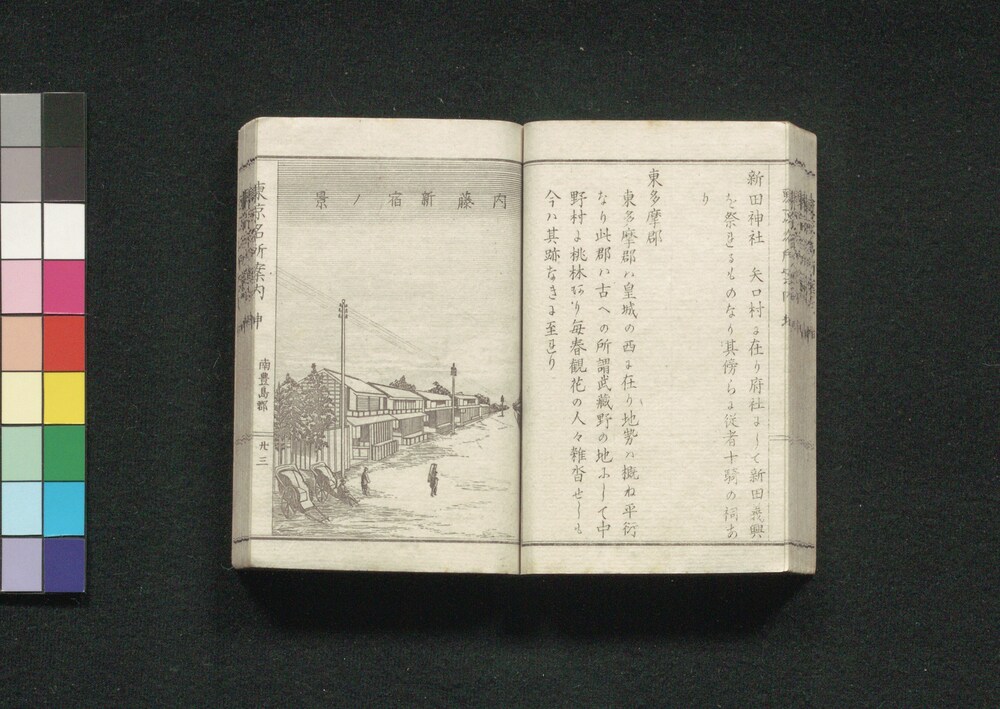 新田神社　矢口村に在り府社にして新田義興
を祭れるものなり其傍らに従者十騎の祠あ
り
東多摩郡
東多摩郡ハ皇城の西に在り地勢ハ概ね平衍
なり此郡ハ古への所謂武藏野の地にして中
野村に桃林あり毎春觀花の人々雜沓せしも
今ハ其跡なきに至れり
内藤新宿ノ景
東京名所案内
南豊島郡
廿三